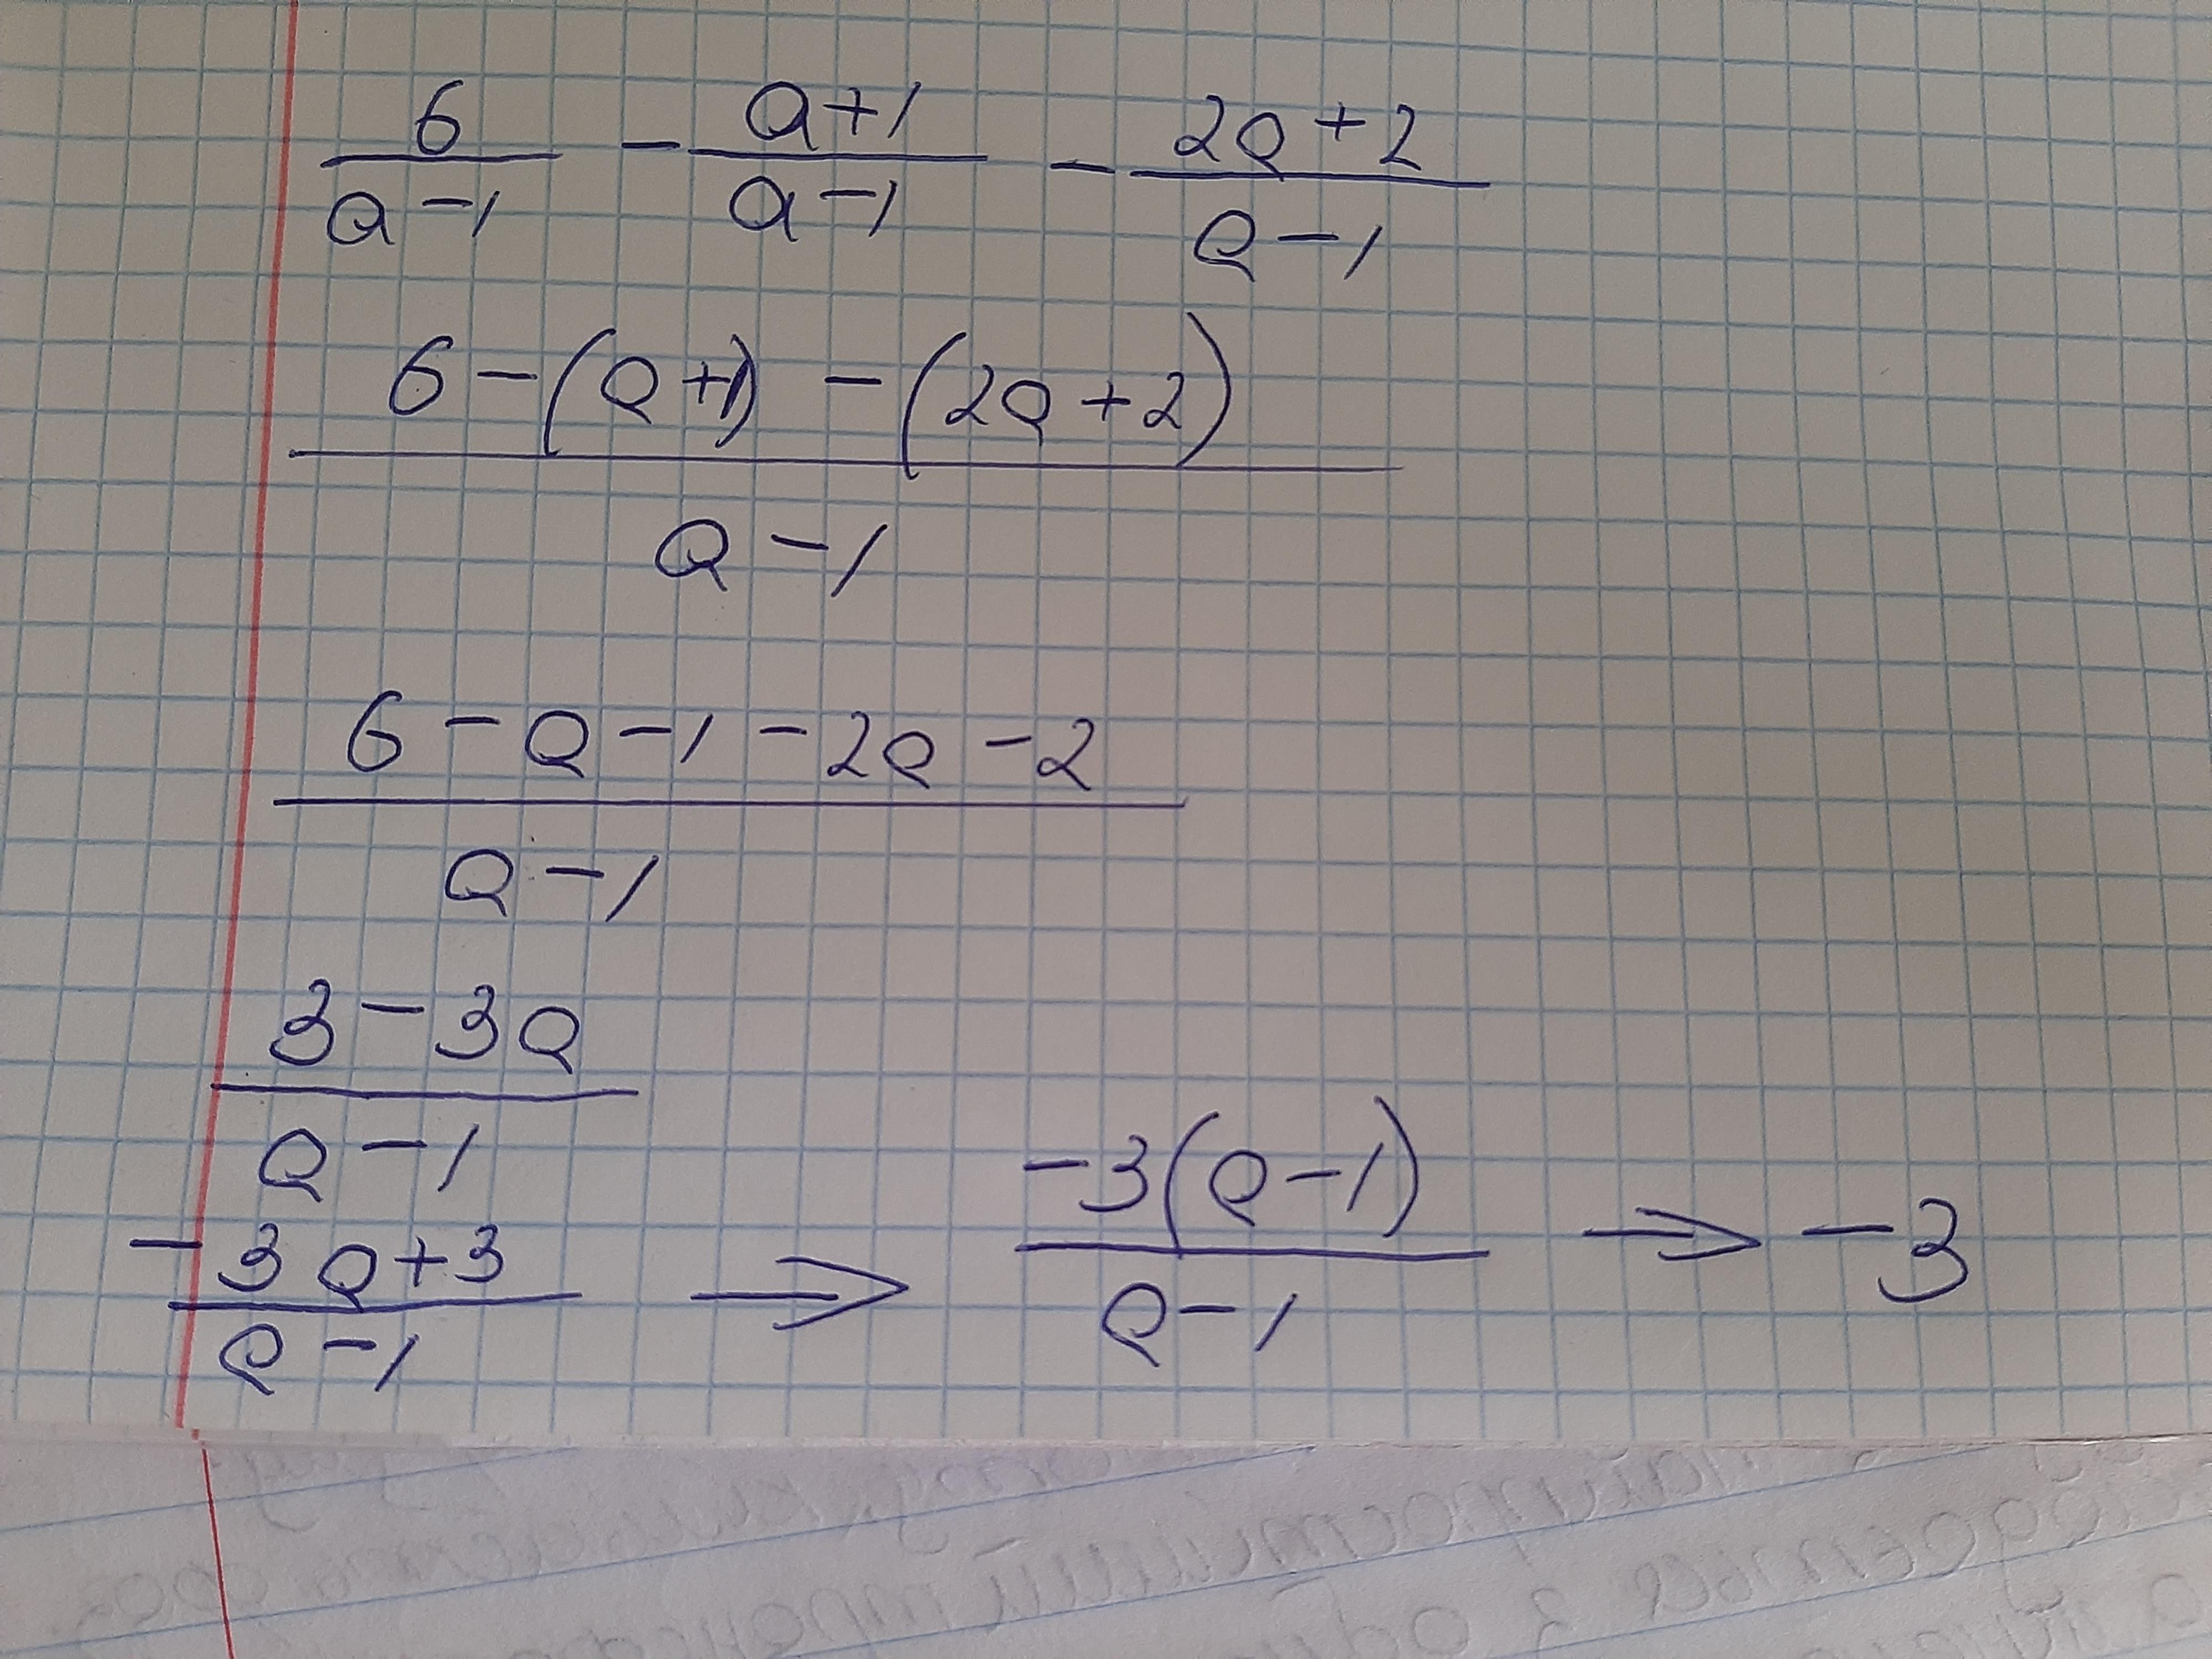 6/(a-1) - (a+1)/(a-1) - (2a+2)/(a-1)
(6-(a+1)-(2a+2))/(a-1)
(6-a-1-2a-2)/(a-1)
(3-3a)/(a-1)
(-3a+3)/(a-1) ⇒ (-3(a-1))/(a-1) ⇒ -3